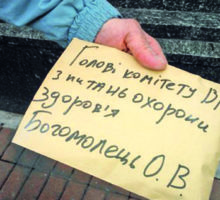 Голові комітету ВР
з питань охорони
здоров'я
Богомолець О.В.